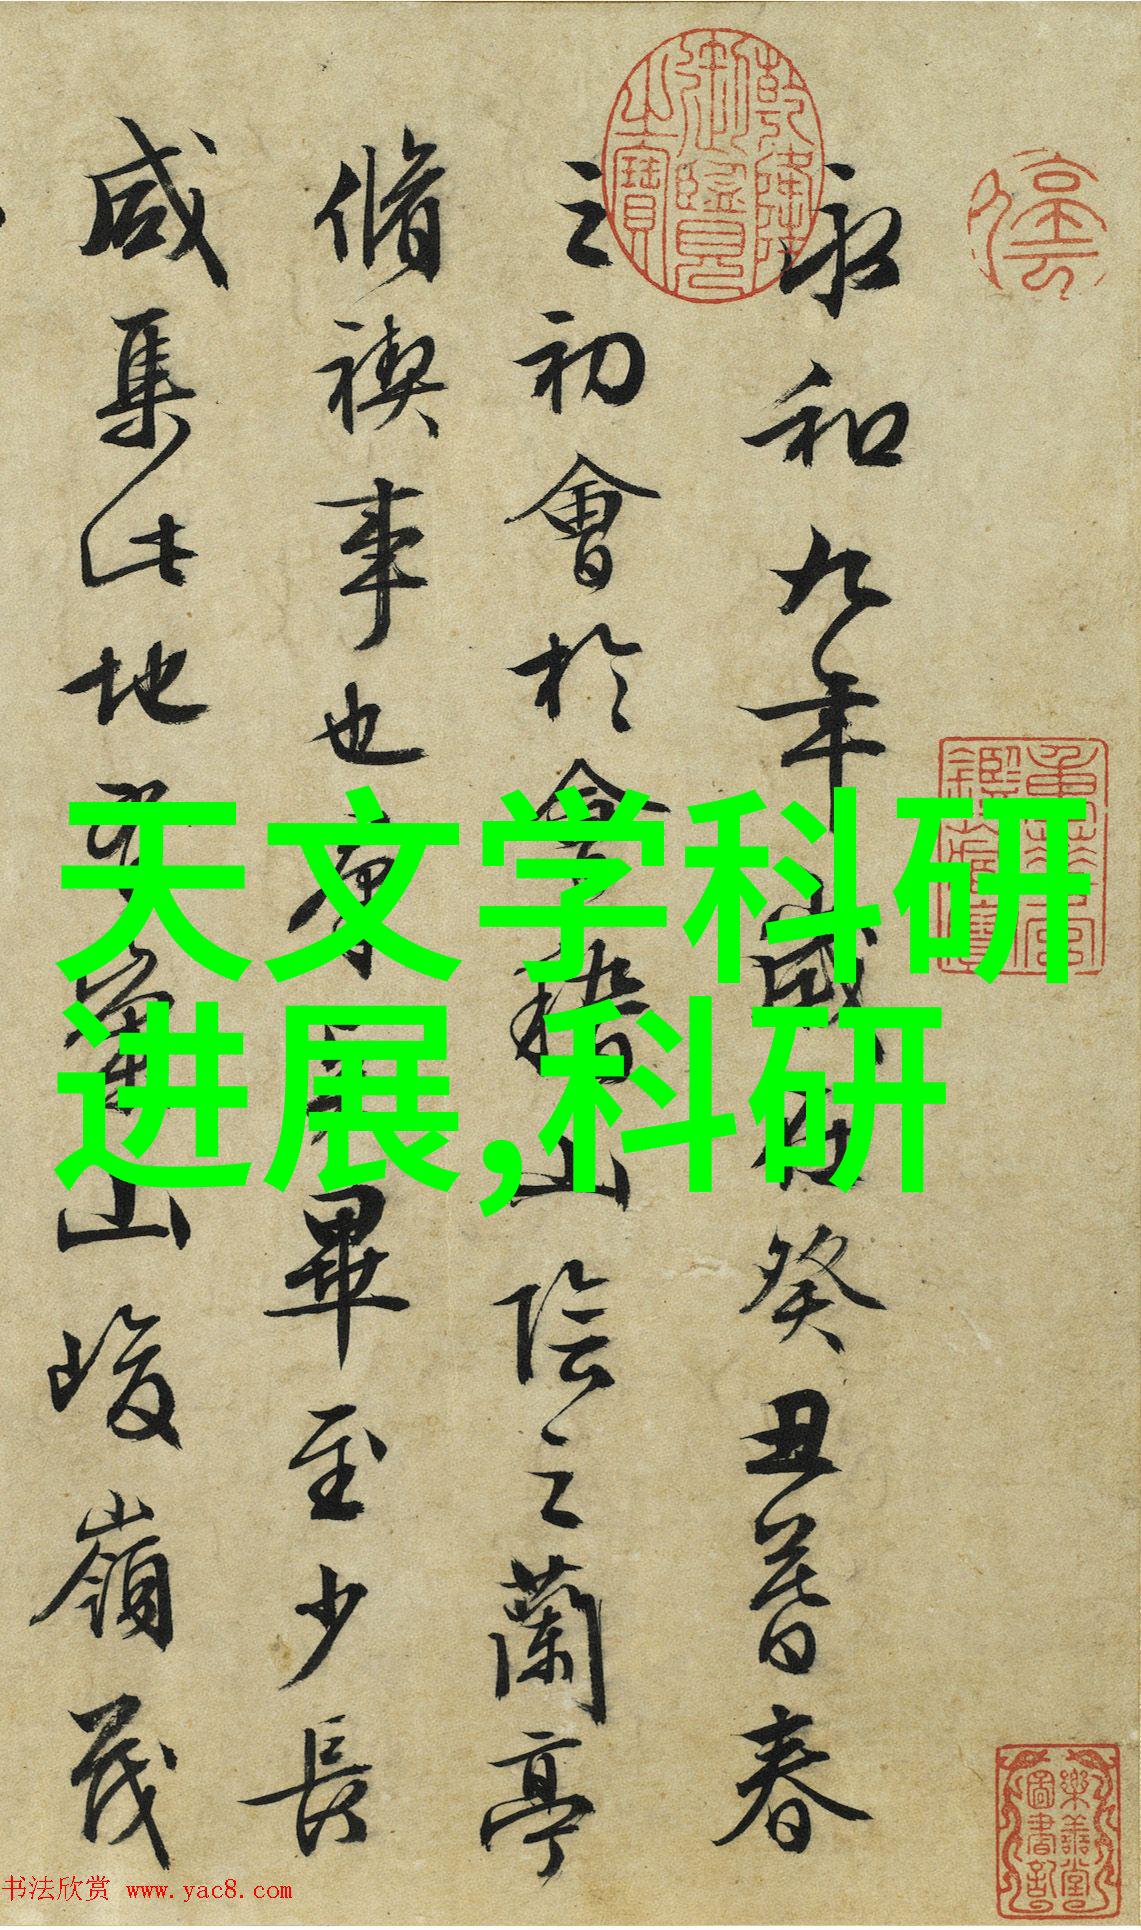 永和九年歲在癸丑暮春
之初會於會稽山陰之蘭亭
脩禊事也羣賢畢至少長
咸集此地有崇山峻嶺茂
天文学科研
进展,科研
乾隆御覽之寶
樂善堂圖書記
书法欣赏 www.yac8.com